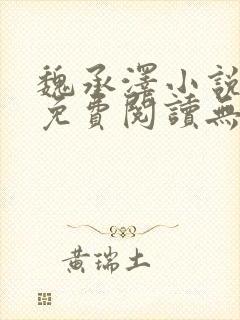 魏承澤小說
免費閱讀無
黃瑞土